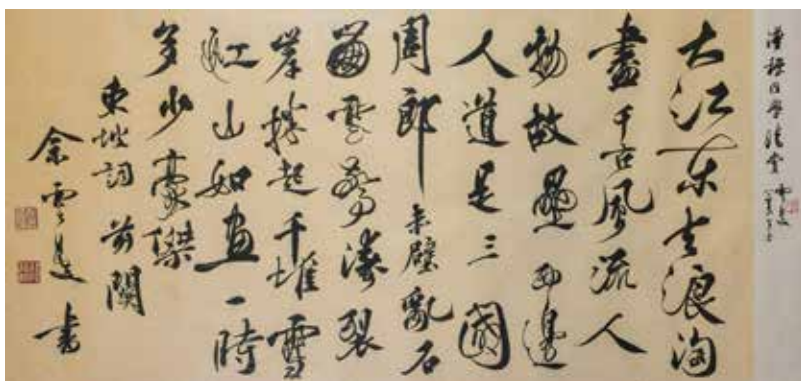 大江東去浪淘
盡千古風流人
物故壘西邊
人道是三國
周郎赤壁亂石
崩雲驚濤裂
岸捲起千堆雪
江山如畫一時
多少豪傑
東坡詞前闋
余雲書